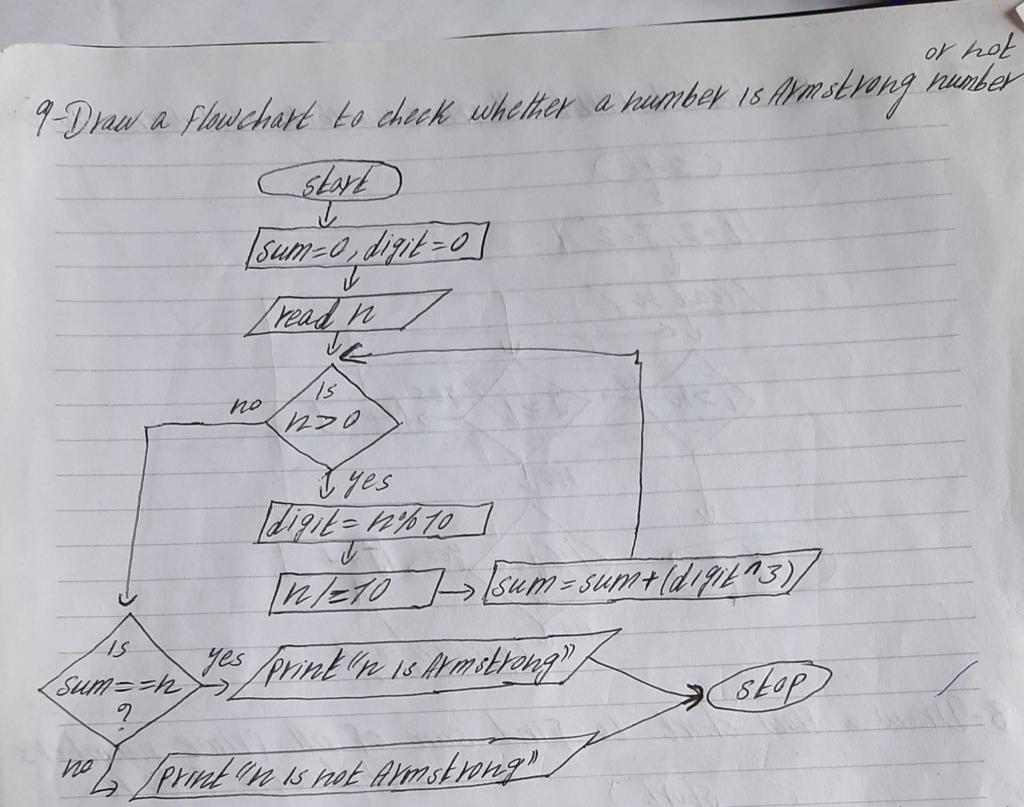 or not
9-Draw a flowchart to check whether a number is Armstrong number
start
sum=0, digit=0
read n
is
n>0
no
yes
digit=n%10
n/=10
sum=sum+(digit^3)
is
sum==n
?
yes
print "n is Armstrong"
stop
no
print "n is not Armstrong"